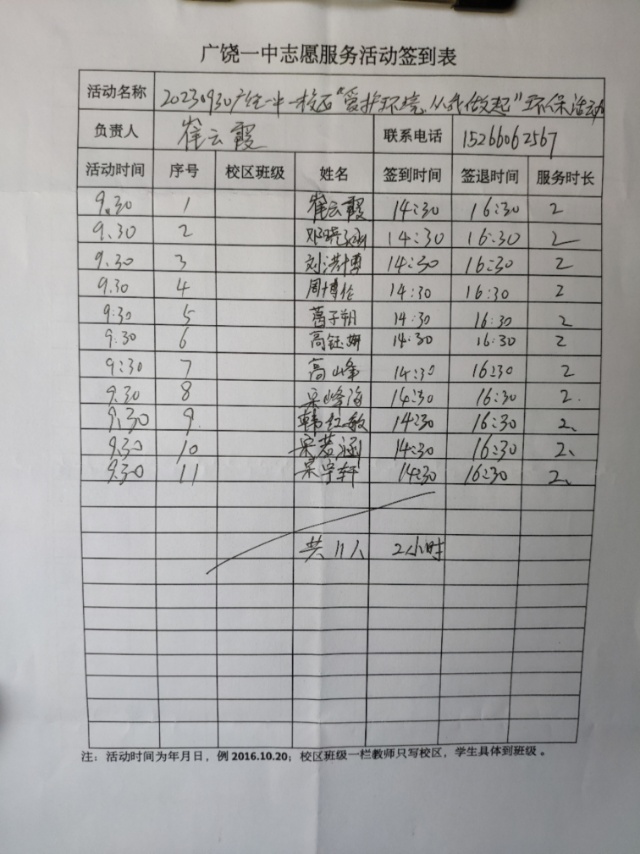 广饶一中志愿服务活动签到表
活动名称 20230930广饶一中一校区“爱护环境,从我做起”环保活动
负责人 崔云霞 联系电话 15266062567
活动时间 序号 校区班级 姓名 签到时间 签退时间 服务时长
9.30 1 崔云霞 14:30 16:30 2
9.30 2 14:30 16:30 2
9.30 3 刘洪博 14:30 16:30 2
9.30 4 周博伦 14:30 16:30 2
9:30 5 子朔 14:30 16:30 2
9.30 6 高钰 14.30 16:30 2
9:30 7 高峰 14:30 16:30 2
9.30 8 峰海 14:30 16:30 2.
9.30 9 韩红敏 14:30 16:30 2、
9.30 10 若涵 14:30 16:30 2、
9.30 11 宇轩 14:30 16:30 2、
共11人 2小时
注：活动时间为年月日，例 2016.10.20；校区班级一栏教师只写校区，学生具体到班级。